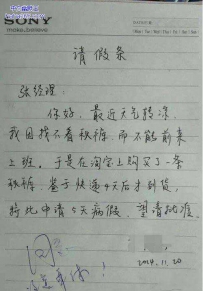 SONY
make.believe
请假条
张经理:
你好,最近天气转凉,
我因找不着秋裤,而不能前来
上班。于是在淘宝上购买了一条
秋裤,鉴于快递4天后才到货,
特此申请5天病假,望请批准。
同
2014.11.20